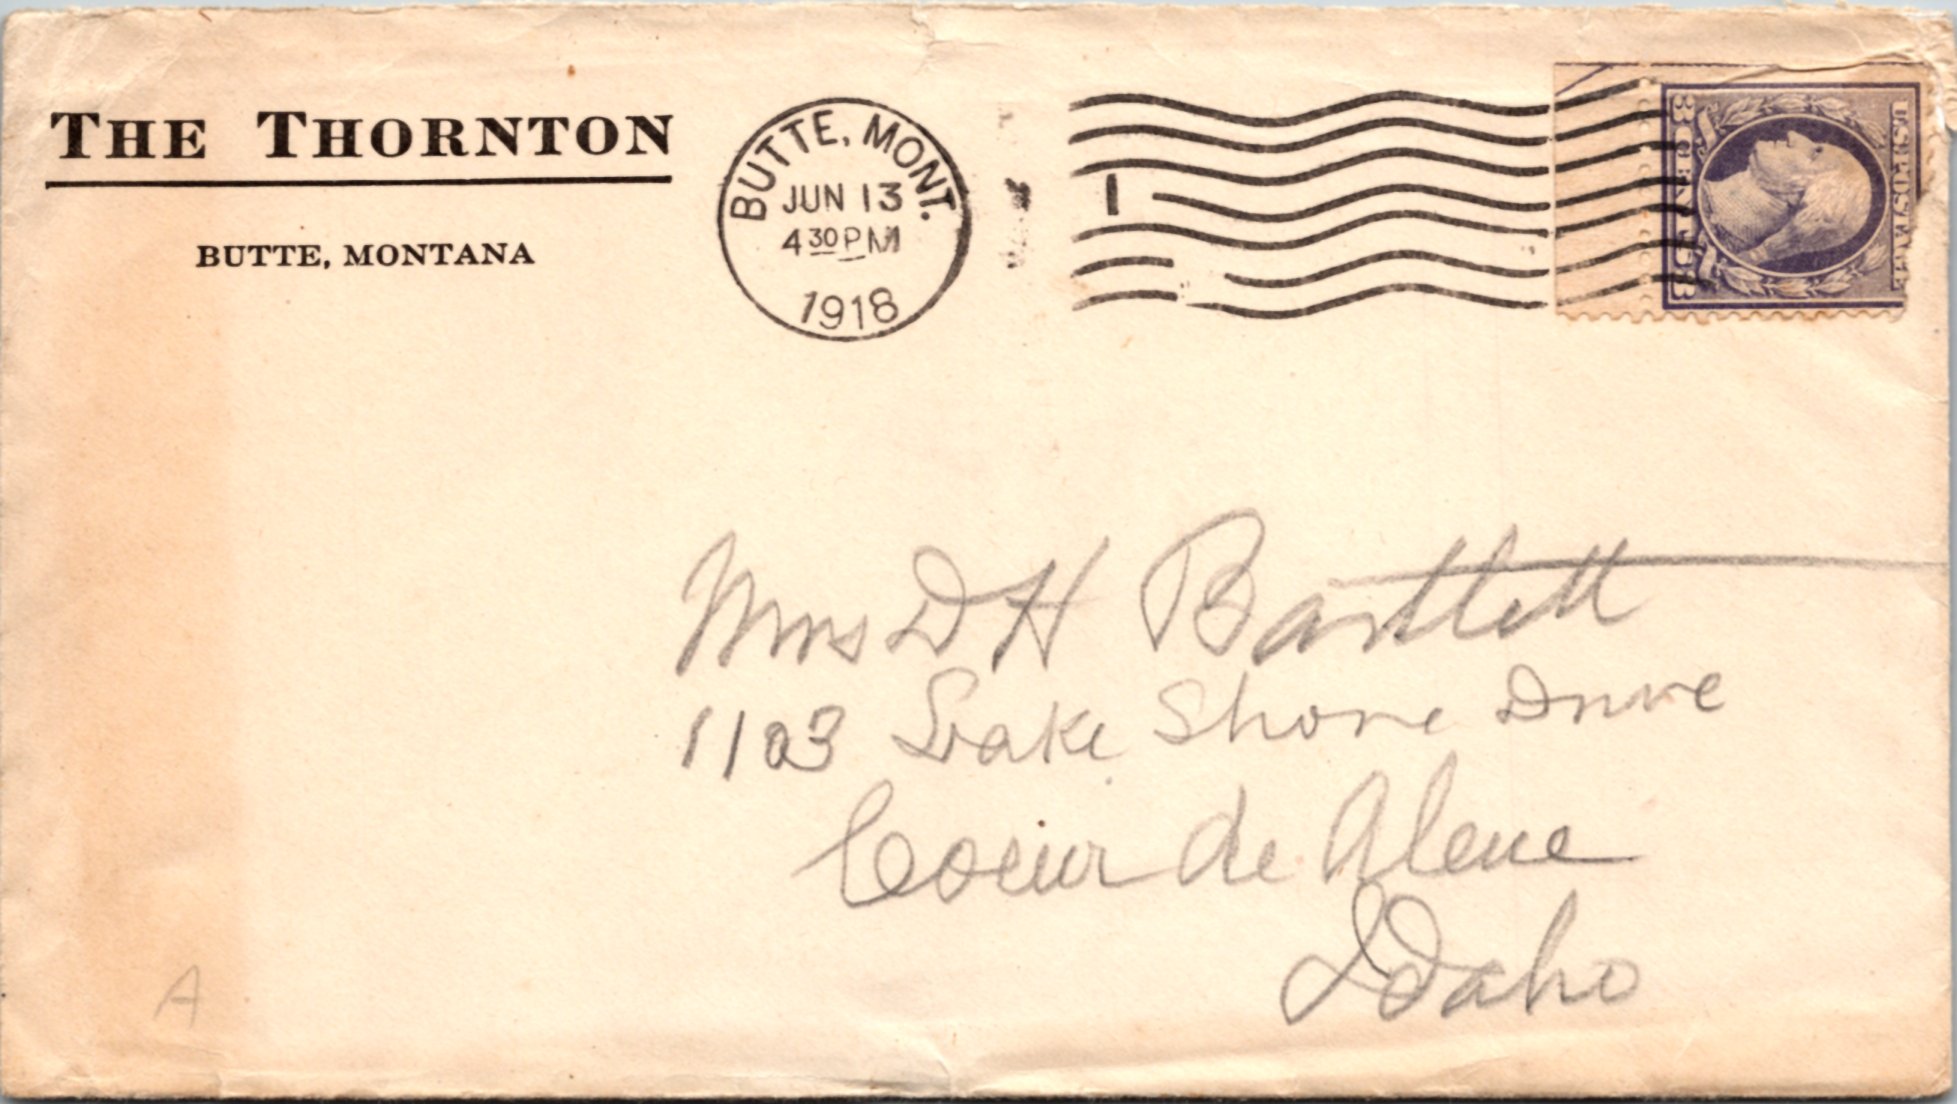 THE THORNTON
BUTTE, MONTANA
BUTTE, MONT.
JUN 13
4 30 PM
1918
1
U.S. POSTAGE
3 CENTS 3
Mrs D H Bartlett
1103 Lake Shore Drive
Coeur de Alene
Idaho
A